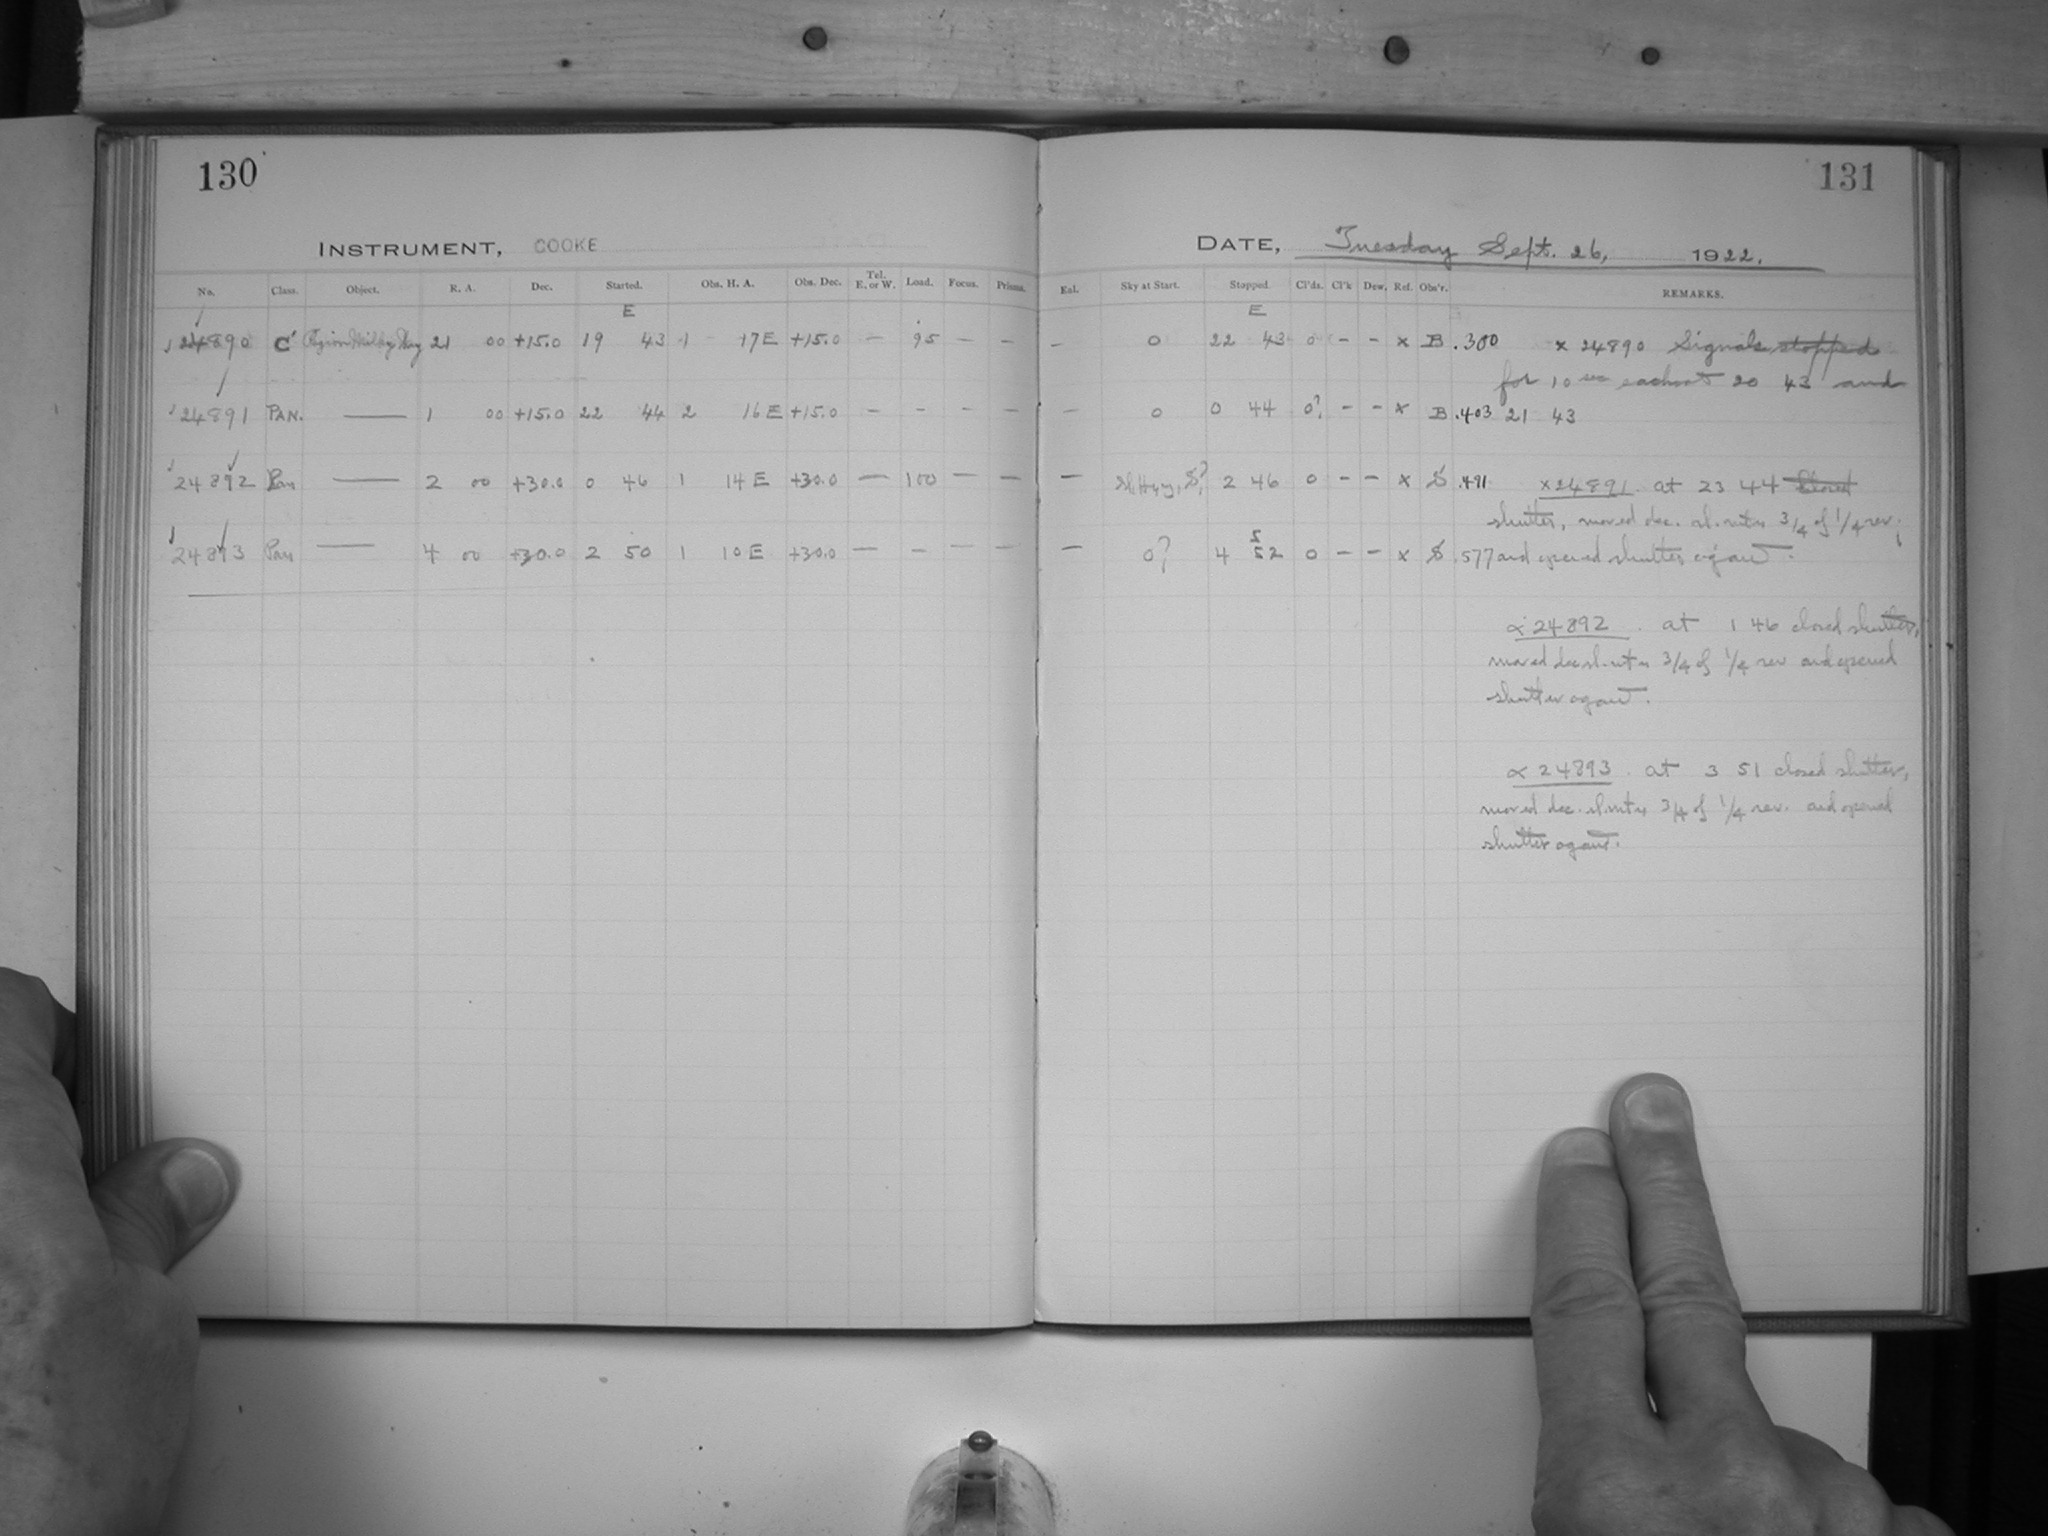 130
131
INSTRUMENT, COOKE
DATE, Tuesday Sept. 26, 1922.
No. Class. Object. R. A. Dec. Started. Obs. H. A. Obs. Dec. Tel. E. or W. Load. Focus. Prisms. Eal. Sky at Start. Stopped Cl'ds. Cl'k Dew. Ref. Obs'r. REMARKS.
E E
24890 C' Region Milky Way 21 00 +15.0 19 43 1 17E +15.0 — 95 — — – 0 22 43 0 – – x B .300 x 24890 Signals stopped
for 10 sec each at 20 43 and
24891 PAN. — 1 00 +15.0 22 44 2 16E +15.0 – – – – – 0 0 44 0? – – x B .403 21 43
24892 Pan — 2 00 +30.0 0 46 1 14E +30.0 — 100 — — — 2 46 0 – – x S .491 x 24891. at 23 44 closed
shutter, moved dec. sl. mtn 3/4 of 1/4 rev.
24893 Pan — 4 00 +30.0 2 50 1 10E +30.0 — – – — — 0? 4 52 0 – – x S .577 and opened shutter again.
5
α 24892. at 1 46 closed shutter,
moved dec sl. mtn 3/4 of 1/4 rev and opened
shutter again.
α 24893. at 3 51 closed shutter,
moved dec. sl. mtn 3/4 of 1/4 rev. and opened
shutter again.